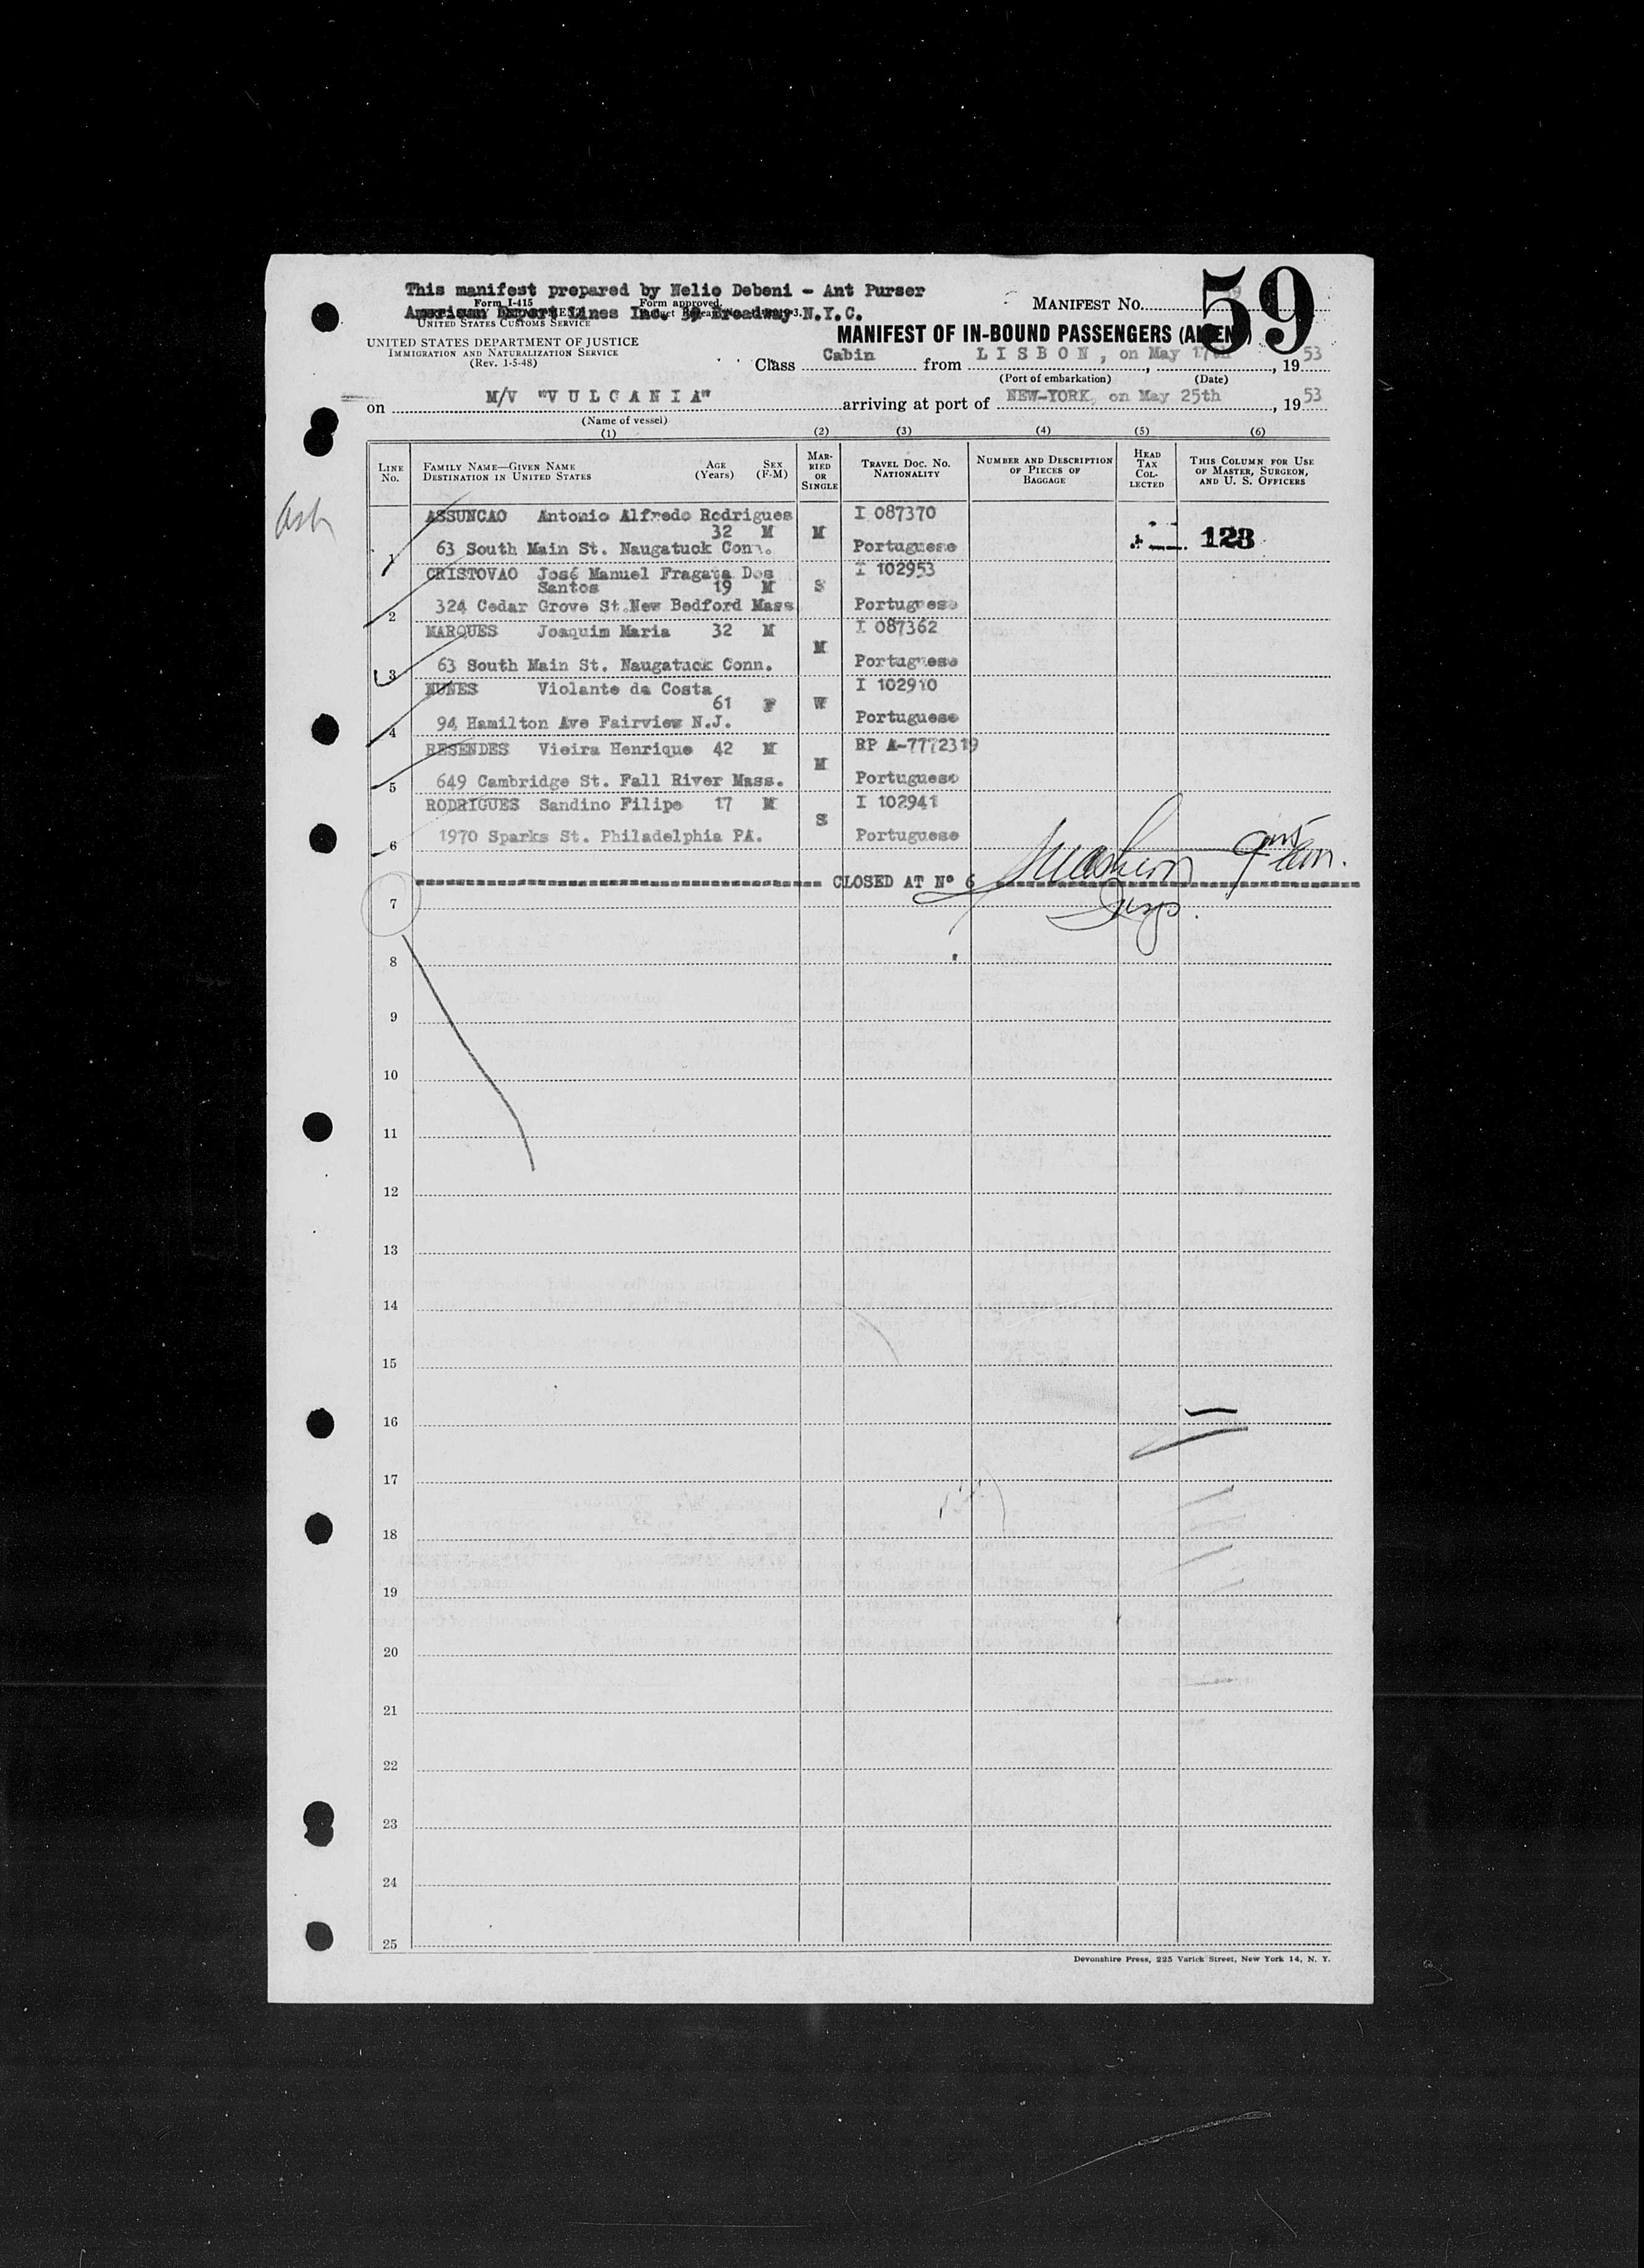 This manifest prepared by Nelio Debeni - Ant Purser
American Export Lines Inc. 39 Broadway N.Y.C.
Form I-415
Form approved.
UNITED STATES CUSTOMS SERVICE
UNITED STATES DEPARTMENT OF JUSTICE
IMMIGRATION AND NATURALIZATION SERVICE
(Rev. 1-5-48)
MANIFEST NO. 59
MANIFEST OF IN-BOUND PASSENGERS (ALIEN)
Class Cabin from LISBON, on May 17th, 1953
(Port of embarkation) (Date)
on M/V "VULCANIA" arriving at port of NEW-YORK, on May 25th, 1953
(Name of vessel)
(1) (2) (3) (4) (5) (6)
LINE NO.
FAMILY NAME—GIVEN NAME
DESTINATION IN UNITED STATES
AGE (Years)
SEX (F-M)
MARRIED OR SINGLE
TRAVEL DOC. NO. NATIONALITY
NUMBER AND DESCRIPTION OF PIECES OF BAGGAGE
HEAD TAX COLLECTED
THIS COLUMN FOR USE OF MASTER, SURGEON, AND U. S. OFFICERS
ASSUNCAO Antonio Alfredo Rodrigues I 087370
32 M M 123
1 63 South Main St. Naugatuck Conn. Portuguese
CRISTOVAO José Manuel Fragata Dos I 102953
Santos 19 M S
2 324 Cedar Grove St.New Bedford Mass Portuguese
MARQUES Joaquim Maria 32 M M I 087362
3 63 South Main St. Naugatuck Conn. Portuguese
NUNES Violante da Costa I 102910
61 F W
4 94 Hamilton Ave Fairview N.J. Portuguese
RESENDES Vieira Henrique 42 M M RP A-7772319
5 649 Cambridge St. Fall River Mass. Portuguese
RODRIGUES Sandino Filipe 17 M S I 102941
6 1970 Sparks St. Philadelphia PA. Portuguese
CLOSED AT Nº 6
Insp.
7
8
9
10
11
12
13
14
15
16
17
18
19
20
21
22
23
24
25
Devonshire Press, 225 Varick Street, New York 14, N. Y.